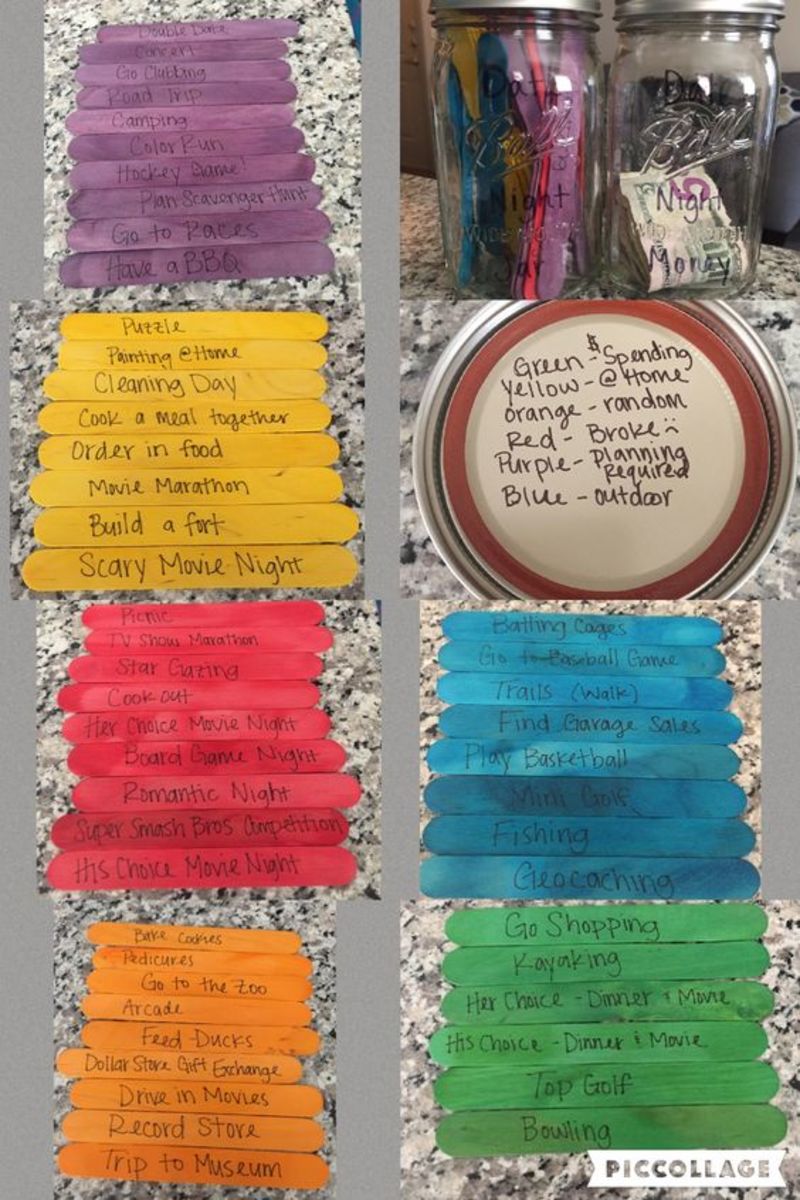 Double Date
Concert
Go Clubbing
Road Trip
Camping
Color Run
Hockey Game!
Plan Scavenger Hunt
Go to Races
Have a BBQ
Date
Ball
Night
WIDE MOUTH
Jar
Date
Ball
Night
WIDE MOUTH
Money
Puzzle
Painting @ Home
Cleaning Day
Cook a meal together
Order in food
Movie Marathon
Build a fort
Scary Movie Night
Green - $ Spending
Yellow - @ Home
orange - random
Red - Broke :(
Purple - planning
Required
Blue - outdoor
Picnic
TV Show Marathon
Star Gazing
Cook out
Her Choice Movie Night
Board Game Night
Romantic Night
Super Smash Bros Competition
His Choice Movie Night
Batting Cages
Go to Baseball Game
Trails (Walk)
Find Garage Sales
Play Basketball
Mini Golf
Fishing
Geocaching
Bake Cookies
Pedicures
Go to the Zoo
Arcade
Feed Ducks
Dollar Store Gift Exchange
Drive in Movies
Record Store
Trip to Museum
Go Shopping
Kayaking
Her Choice - Dinner & Movie
His Choice - Dinner & Movie
Top Golf
Bowling
PICCOLLAGE